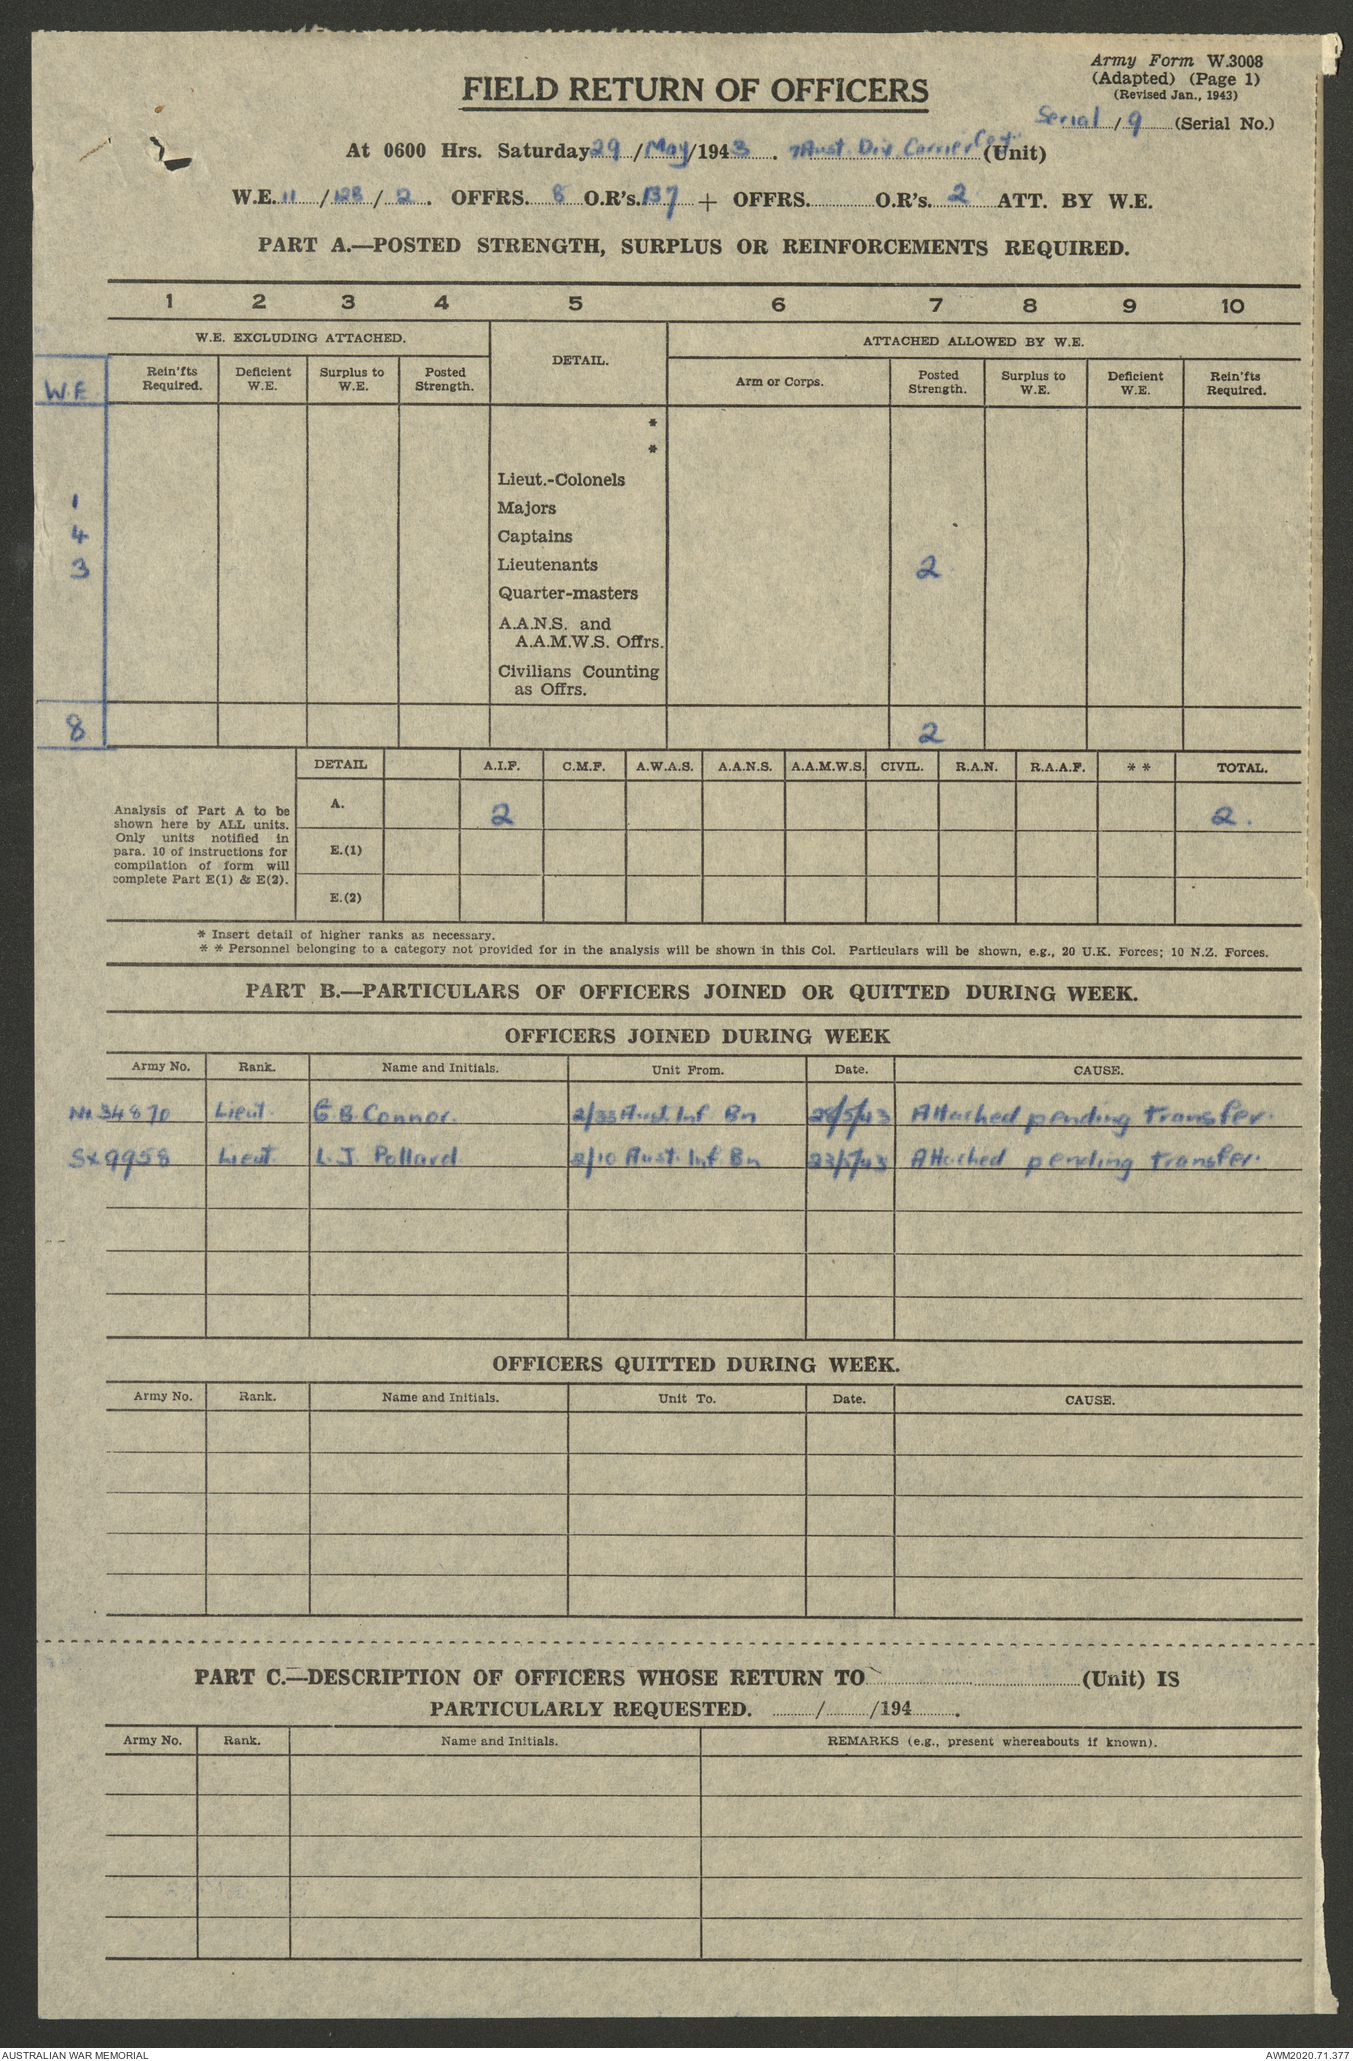 Army Form W.3008
(Adapted) (Page 1)
(Revised Jan., 1943)
FIELD RETURN OF OFFICERS
Serial / 9 (Serial No.)
At 0600 Hrs. Saturday 29 / May / 1943 . 7 Aust. Div. Carrier Coy. (Unit)
W.E. 11 / 128 / 2 . OFFRS. 8 O.R's. 137 + OFFRS. O.R's. 2 ATT. BY W.E.
PART A.—POSTED STRENGTH, SURPLUS OR REINFORCEMENTS REQUIRED.
1 2 3 4 5 6 7 8 9 10
W.E. EXCLUDING ATTACHED. DETAIL. ATTACHED ALLOWED BY W.E.
W.E. Rein'fts Required. Deficient W.E. Surplus to W.E. Posted Strength. Arm or Corps. Posted Strength. Surplus to W.E. Deficient W.E. Rein'fts Required.
*
*
Lieut.-Colonels
1 Majors
4 Captains
3 Lieutenants 2
Quarter-masters
A.A.N.S. and
A.A.M.W.S. Offrs.
Civilians Counting
as Offrs.
8 2
DETAIL A.I.F. C.M.F. A.W.A.S. A.A.N.S. A.A.M.W.S. CIVIL. R.A.N. R.A.A.F. * * TOTAL.
Analysis of Part A to be
shown here by ALL units.
Only units notified in
para. 10 of instructions for
compilation of form will
complete Part E(1) & E(2).
A. 2 2.
E.(1)
E.(2)
* Insert detail of higher ranks as necessary.
* * Personnel belonging to a category not provided for in the analysis will be shown in this Col. Particulars will be shown, e.g., 20 U.K. Forces; 10 N.Z. Forces.
PART B.—PARTICULARS OF OFFICERS JOINED OR QUITTED DURING WEEK.
OFFICERS JOINED DURING WEEK
Army No. Rank. Name and Initials. Unit From. Date. CAUSE.
34870 Lieut. G.B. Connor. 2/33 Aust. Inf. Bn 28/5/43 Attached pending transfer.
Sx9958 Lieut. L.J. Pollard 2/10 Aust. Inf. Bn 23/5/43 Attached pending transfer.
OFFICERS QUITTED DURING WEEK.
Army No. Rank. Name and Initials. Unit To. Date. CAUSE.
PART C.—DESCRIPTION OF OFFICERS WHOSE RETURN TO (Unit) IS
PARTICULARLY REQUESTED. / /194 .
Army No. Rank. Name and Initials. REMARKS (e.g., present whereabouts if known).
AUSTRALIAN WAR MEMORIAL AWM2020.71.377